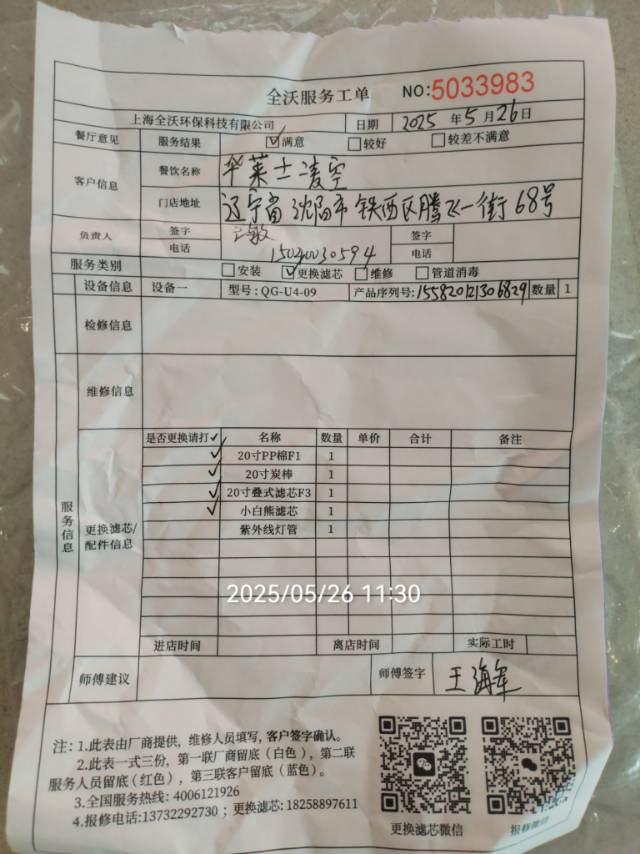 全沃服务工单 NO:5033983
上海全沃环保科技有限公司 日期 2025 年 5 月 26 日
餐厅意见 服务结果 ☑满意 □较好 □较差不满意
客户信息 餐饮名称 华莱士凌空
门店地址 辽宁省沈阳市铁西区腾飞一街68号
负责人 签字 敏 签字
电话 电话
服务类别 □安装 ☑更换滤芯 □维修 □管道消毒
设备信息 设备一 型号:QG-U4-09 产品序列号:155820121306829 数量 1
检修信息
服务信息
维修信息
更换滤芯/配件信息
是否更换请打✓ 名称 数量 单价 合计 备注
✓ 20寸PP棉F1 1
✓ 20寸炭棒 1
✓ 20寸叠式滤芯F3 1
✓ 小白熊滤芯 1
紫外线灯管 1
2025/05/26 11:30
进店时间 离店时间 实际工时
师傅建议 师傅签字 王海军
注：1.此表由厂商提供，维修人员填写，客户签字确认。
2.此表一式三份，第一联厂商留底（白色），第二联
服务人员留底（红色），第三联客户留底（蓝色）。
3.全国服务热线: 4006121926
4.报修电话:13732292730；更换滤芯:18258897611
更换滤芯微信 报修微信